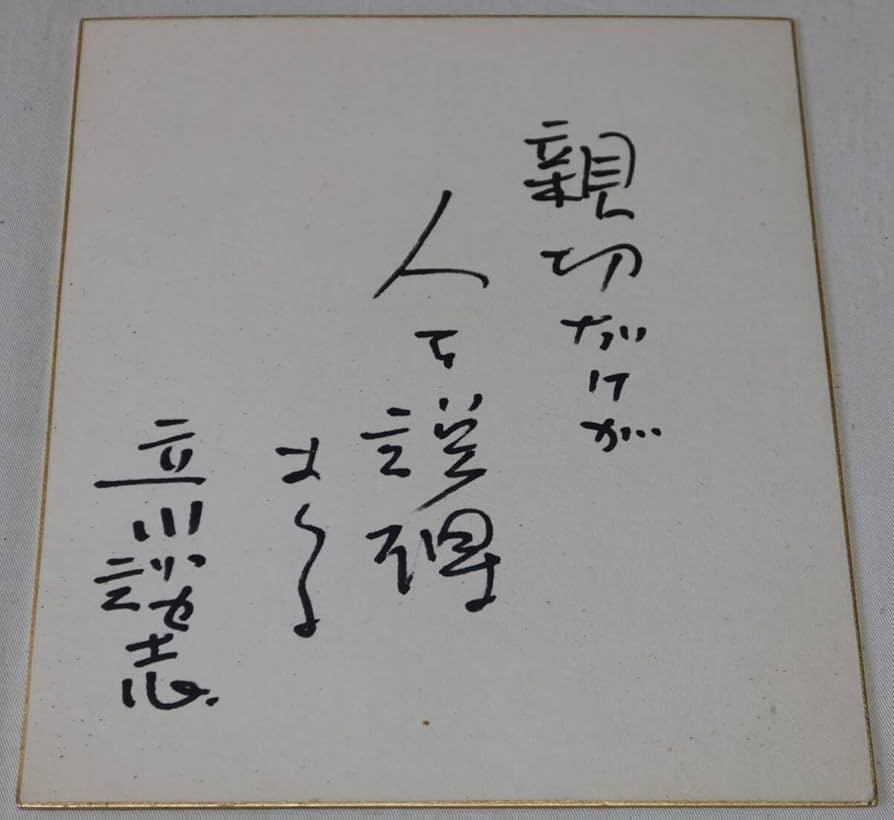 親切だけが
人を説得
する
立川談志